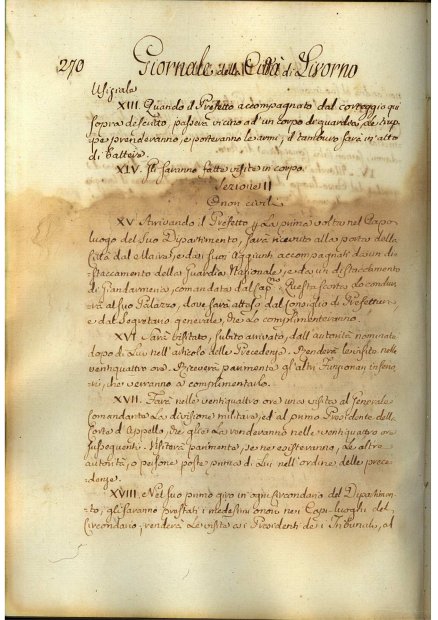 270 Giornale della Città di Livorno
Usiziale
XIII. Quando il Prefetto accompagnato dal correggio qui
sopra descritto, passerà vicino ad un corpo di guardia, le trup-
pe prenderanno, e porteranno le armi; il tamburo sarà in atto
di battere.
XIV. Gli saranno fatte visite in corpo.
Sezione II
Onori civili
XV. Arrivando il Prefetto p. la prima volta nel Capo-
luogo del suo Dipartimento, sarà ricevuto alla porta della
Città dal Maire, e da' suoi Aggiunti accompagnati da un di-
staccamento della Guardia Nazionale, e da un distaccamento
di Giandarmeria, comandata dal Capno. Questa scorta lo condur-
rà al suo Palazzo, dove sarà atteso dal Consiglio di Prefettura
e dal Segretario generale, che lo complimenteranno.
XVI. Sarà visitato, subito arrivato, dall'autorità nominate
dopo di Lui nell'articolo delle Precedenze. Renderà le visite nelle
ventiquattro ore. Riceverà parimente gl'altri Funzionari inferio-
ri, che verranno a complimentarlo.
XVII. Farà nelle ventiquattro ore una visita al Generale
Comandante La divisione militare, ed al primo Presidente della
Corte d'Appello, che gliela renderanno nelle ventiquattro ore
susseguenti. Visiterà parimente, se ne esisteranno, Le altre
autorità, o persone poste prima di Lui nell'ordine delle prece-
denze.
XVIII. Nel suo primo giro in ogni Circondario del Dipartimen-
to, gli saranno prestati i medesimi onori nei Capi-luoghi del
Circondario; renderà Le visite ai Presidenti dei Tribunali, al